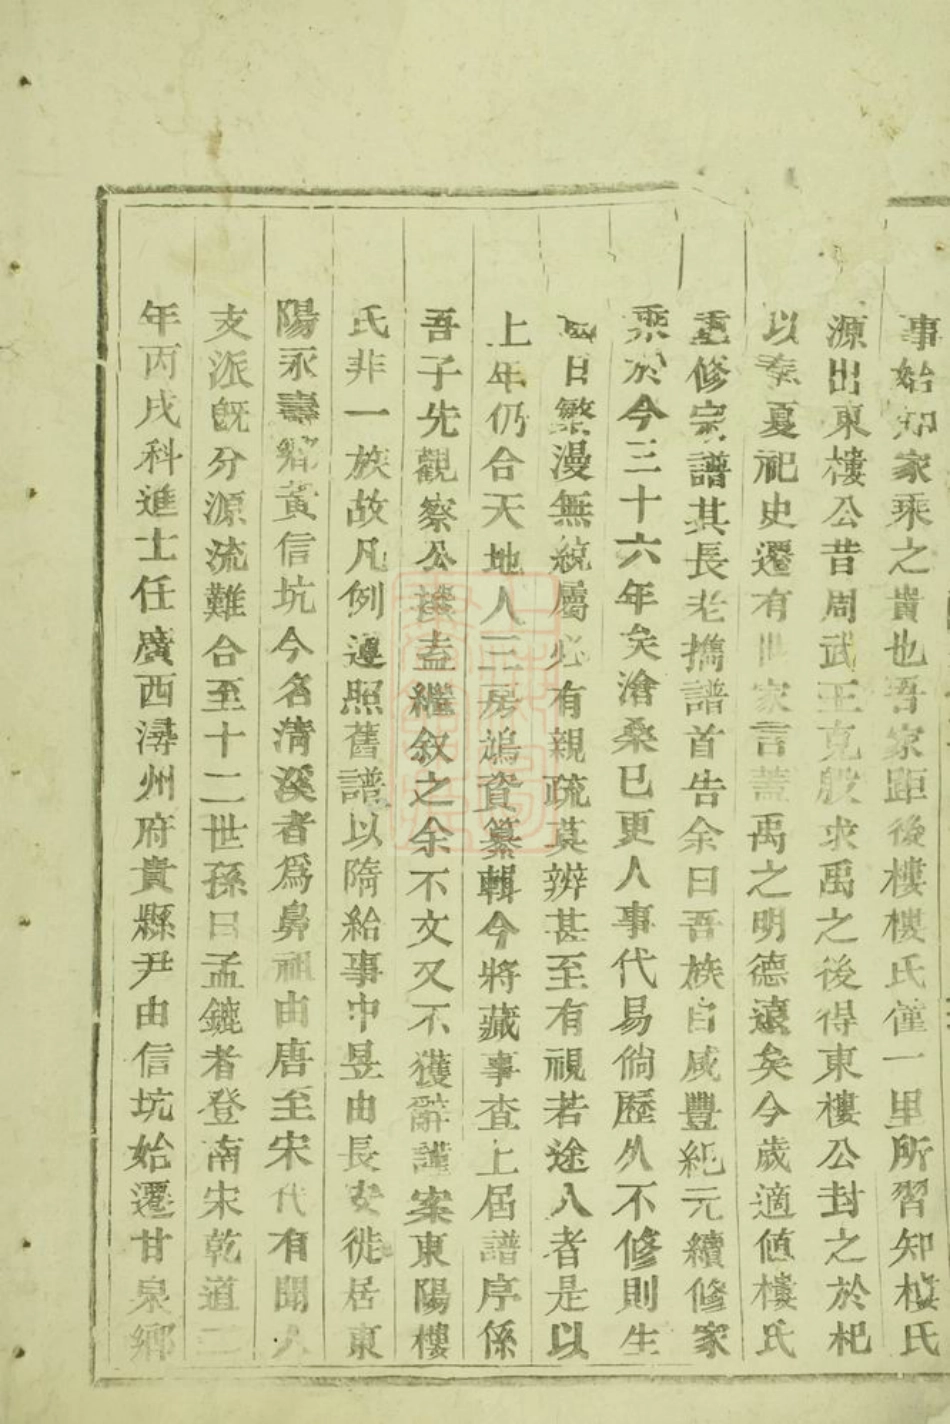 事始知家乘之貴也吾家距後樓樓氏僅一里所習知樓氏
源出東樓公昔周武王克殷求禹之後得東樓公封之於杞
以奉夏祀史遷有世家言蓋禹之明德遠矣今歲適值樓氏
重修宗譜其長老擕譜首告余曰吾族自咸豐紀元續修家
乘於今三十六年矣滄桑已更人事代易倘歷久不修則生
日繁漫無統屬必有親疏莫辨甚至有視若途人者是以
上年仍合天地人三房鳩資纂輯今將蕆事查上屆譜序係
吾子先觀察公撰盍繼叙之余不文又不獲辭謹案東陽樓
氏非一族故凡例遵照舊譜以隋給事中昱由長安徙居東
陽永壽鄉黃信坑今名清溪者爲鼻祖由唐至宋代有聞人
支派旣分源流難合至十二世孫曰孟鏕者登南宋乾道二
年丙戌科進士任廣西潯州府貴縣尹由信坑始遷甘泉鄉